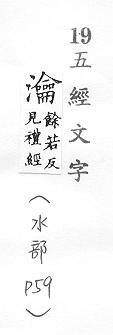 19
五經文字
瀹
餘若反
見禮經
(水部
p59)